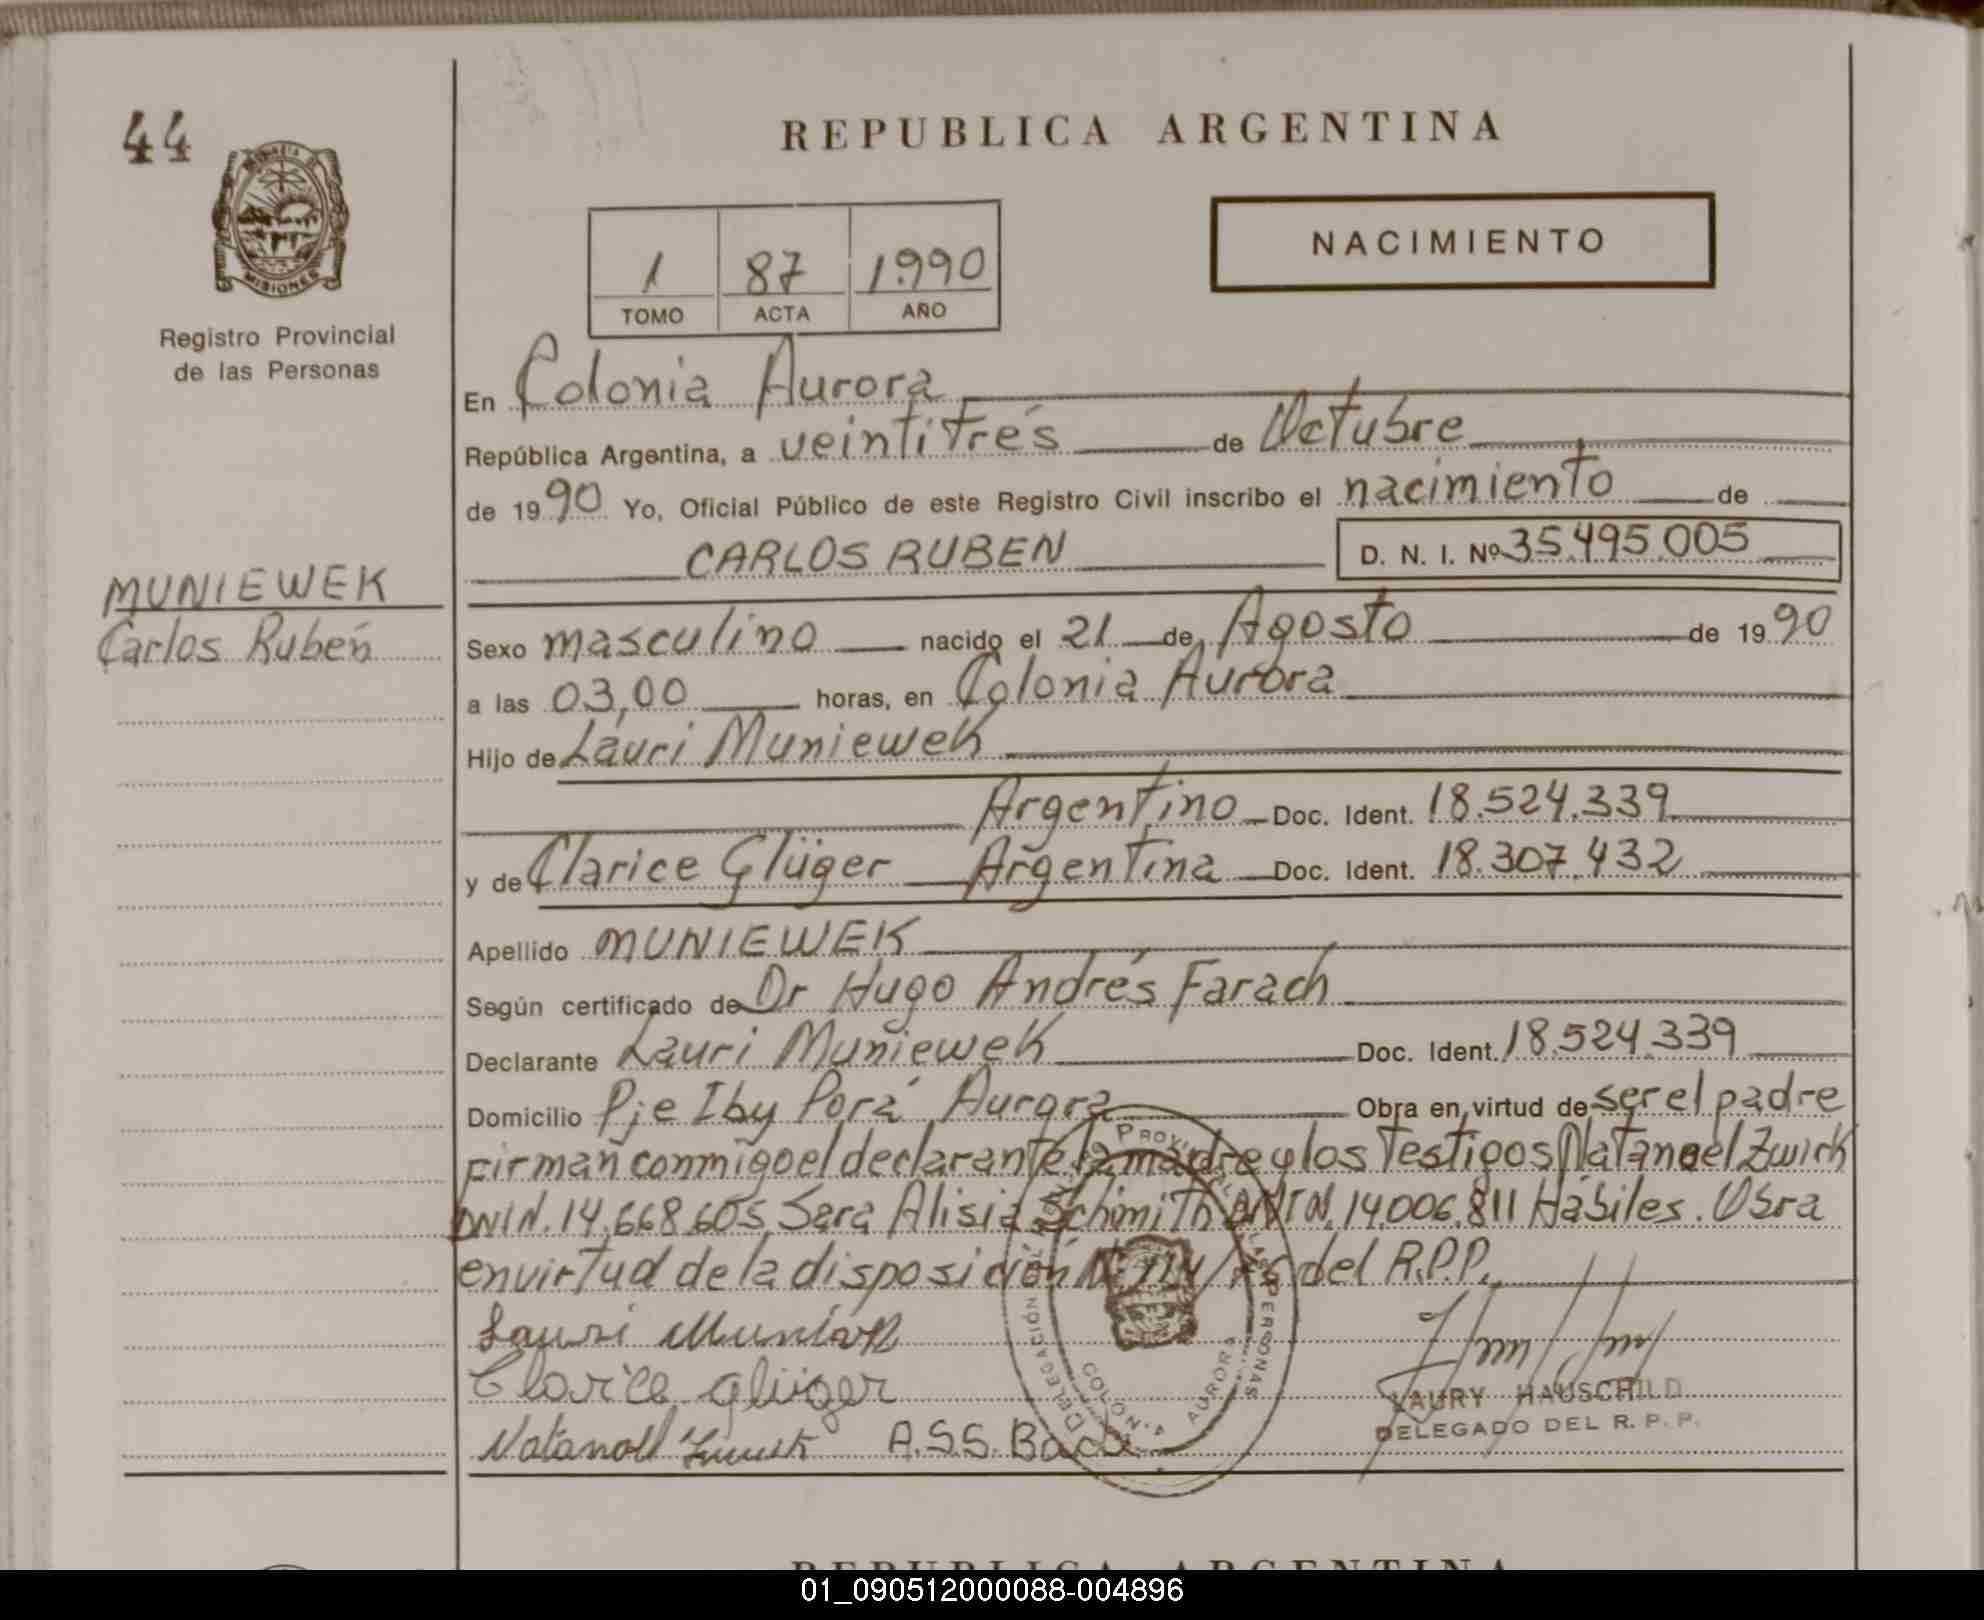 44
REPUBLICA ARGENTINA
NACIMIENTO
1 87 1.990
TOMO ACTA AÑO
MISIONES
Registro Provincial
de las Personas
En Colonia Aurora
República Argentina, a veintitrés de Octubre
de 1990 Yo, Oficial Público de este Registro Civil inscribo el nacimiento de
CARLOS RUBEN D. N. I. Nº 35.495.005
MUNIEWEK
Carlos Rubén
Sexo masculino nacido el 21 de Agosto de 1990
a las 03,00 horas, en Colonia Aurora
Hijo de Lauri Muniewek
Argentino Doc. Ident. 18.524.339
y de Clarice Glüger Argentina Doc. Ident. 18.307.432
Apellido MUNIEWEK
Según certificado de Dr Hugo Andrés Farach
Declarante Lauri Muniewek Doc. Ident. 18.524.339
Domicilio Pje Iby Porá Aurora Obra en virtud de ser el padre
Firman conmigo el declarante la madre y los Testigos Natanael Zwick
DNI N. 14.668.605 Sara Alisia Schimith DNI N. 14.006.811 Hábiles. Obra
en virtud de la disposición del R.P.P.
Lauri
Clarice glüger
A.S.S.
YAURY HAUSCHILD
DELEGADO DEL R. P. P.
DELEGACIÓN PROVINCIAL DE LAS PERSONAS
COLONIA AURORA
REPUBLICA ARGENTINA
01_090512000088-004896